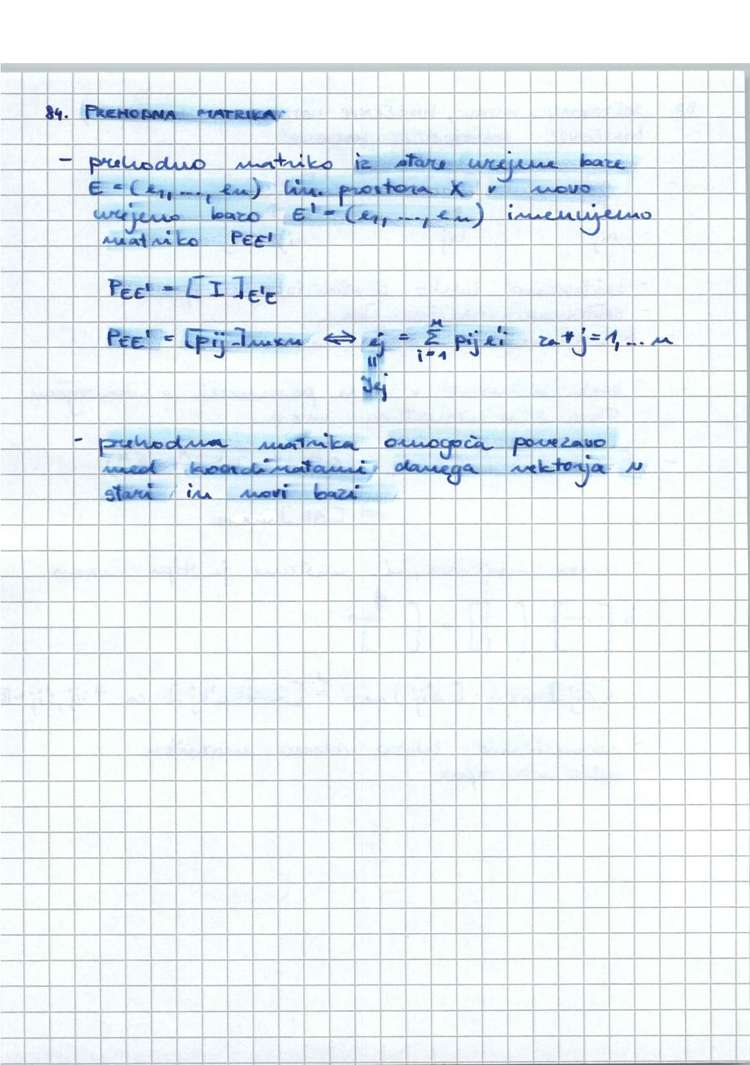 84. PREHODNA MATRIKA
- prehodno matriko iz stare urejene baze
E = (e1, ..., en) lin. prostora X v novo
urejeno bazo E' = (e1, ..., en) imenujemo
matriko PEE'
PEE' = [I]E'E
PEE' = [pij]nxn ⇔ ej = Σ pij e'i za ∀ j=1,... n
n
i=1
||
Iej
- prehodna matrika omogoča povezavo
med koordinatami danega vektorja v
stari in novi bazi